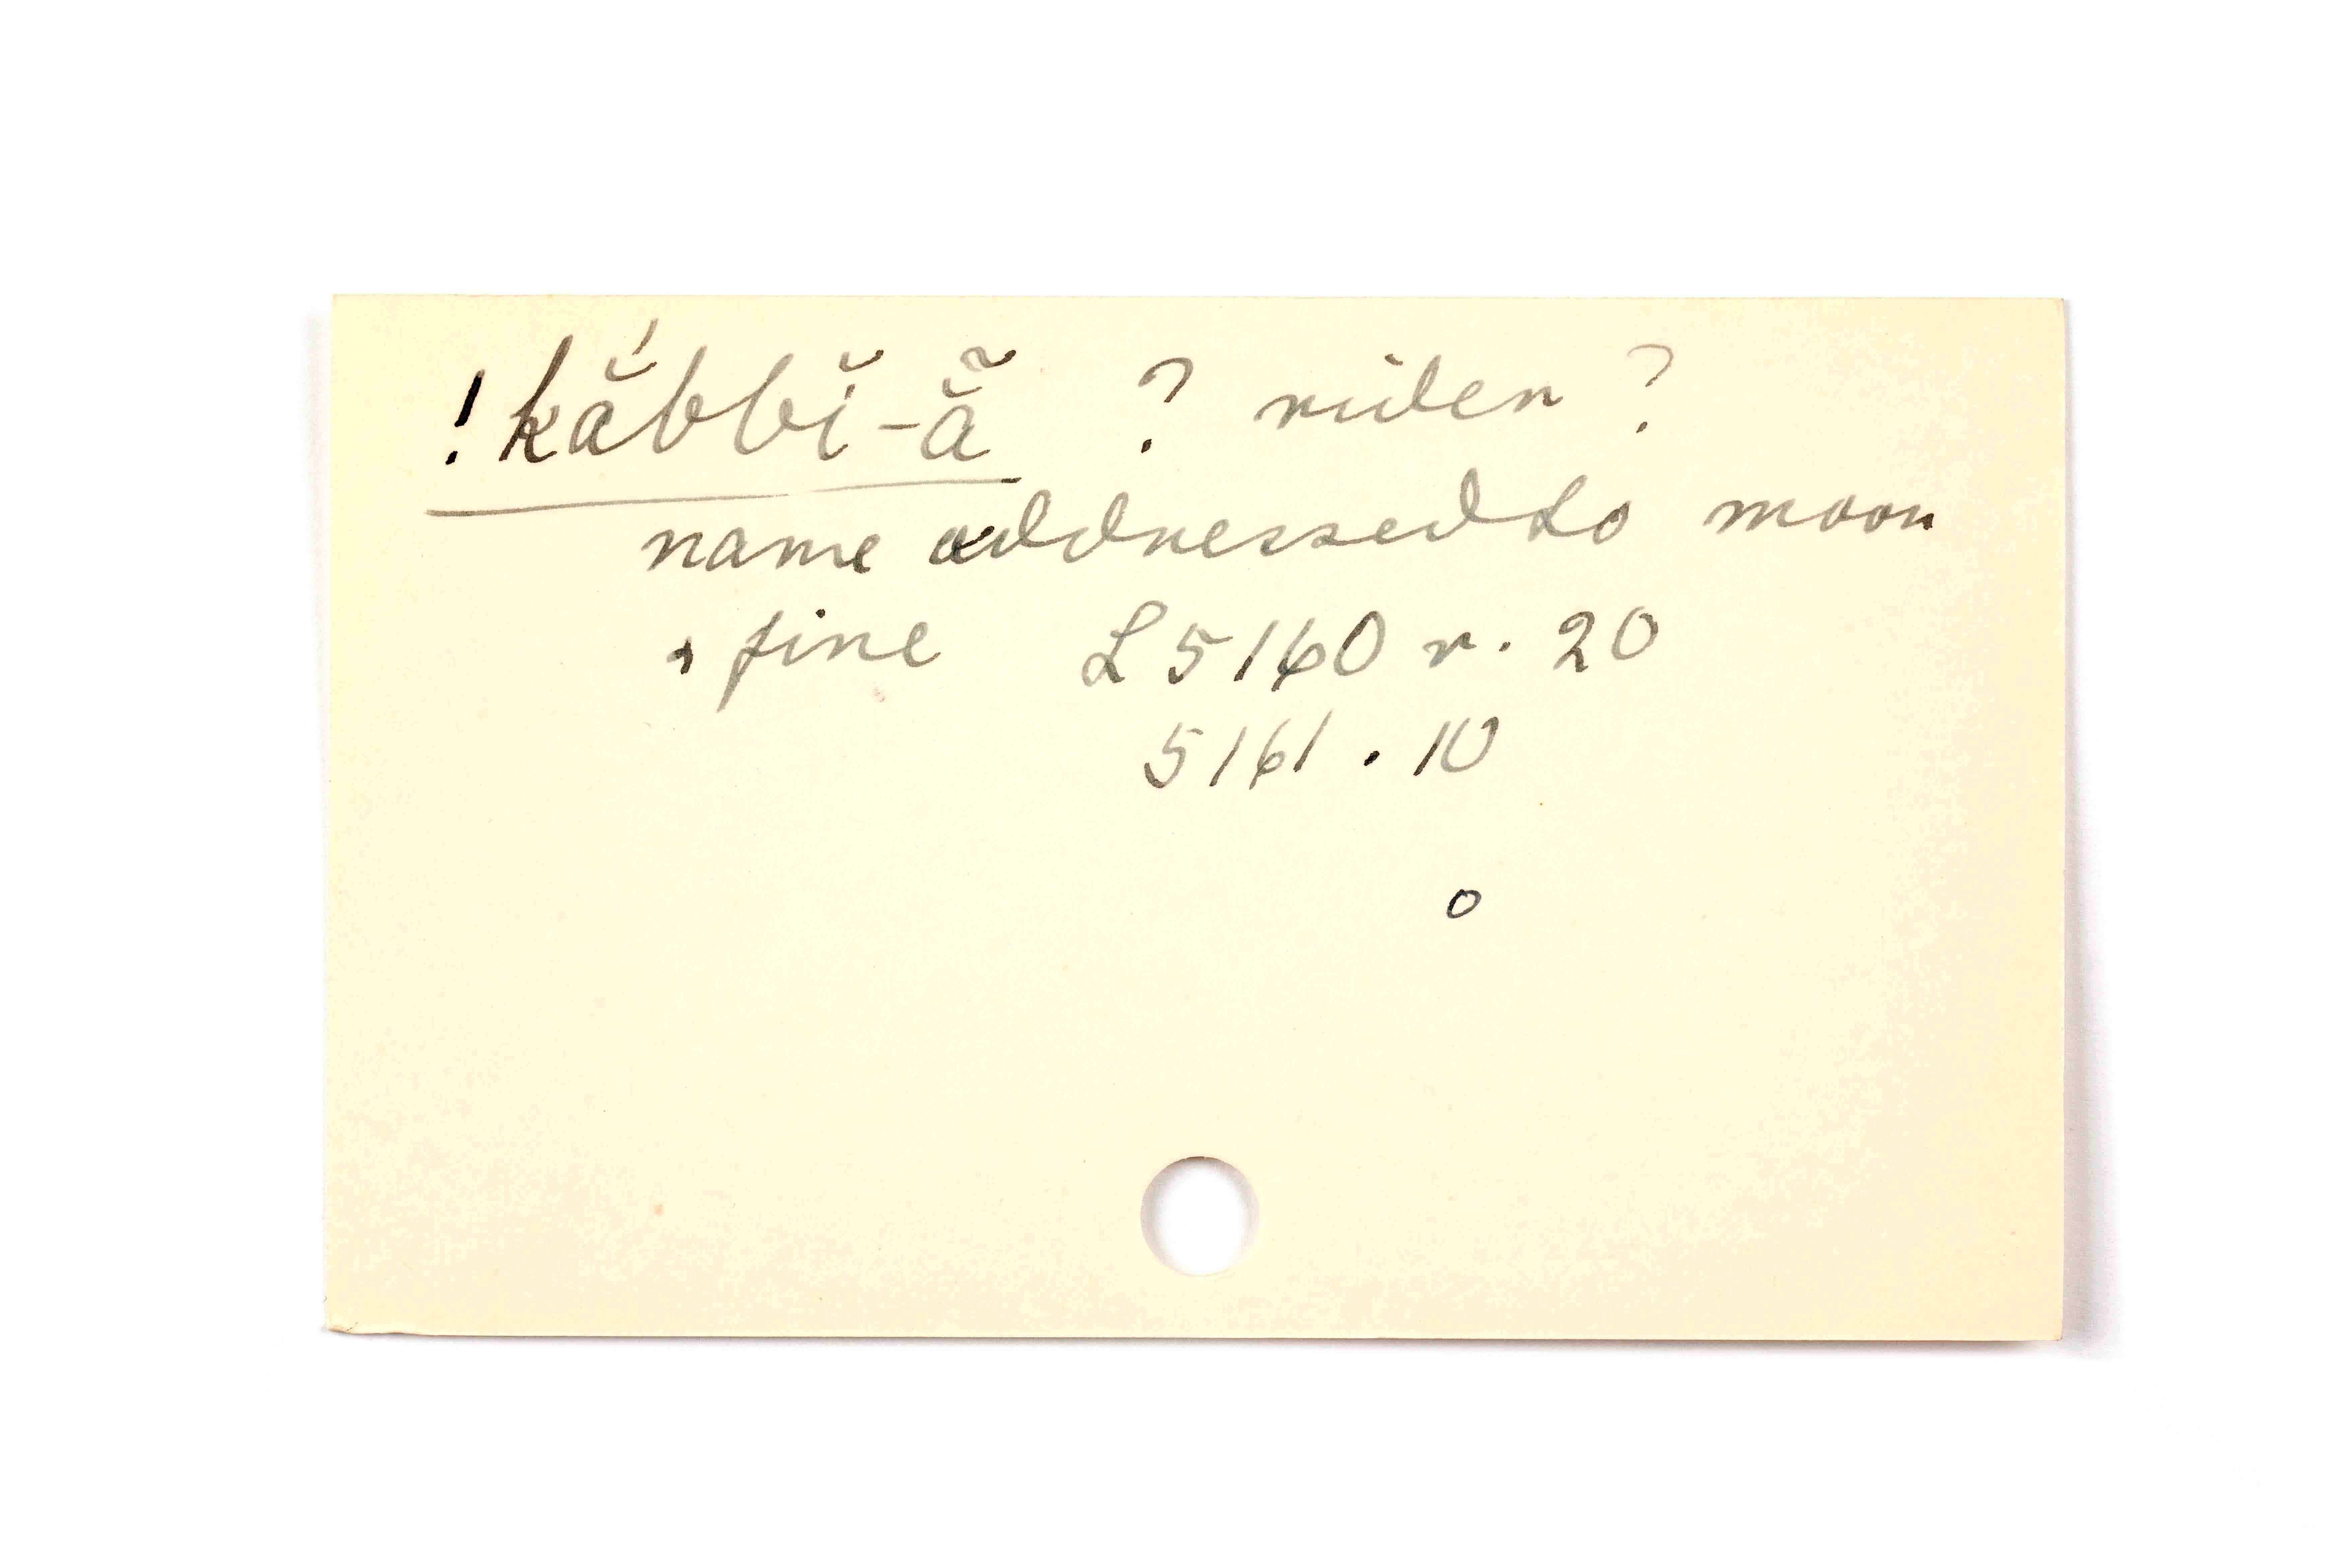 !kắbbĭ-ã̆ ? rider ?
name addressed to moon
+ fire L 5160 r. 20
5161 . 10
o